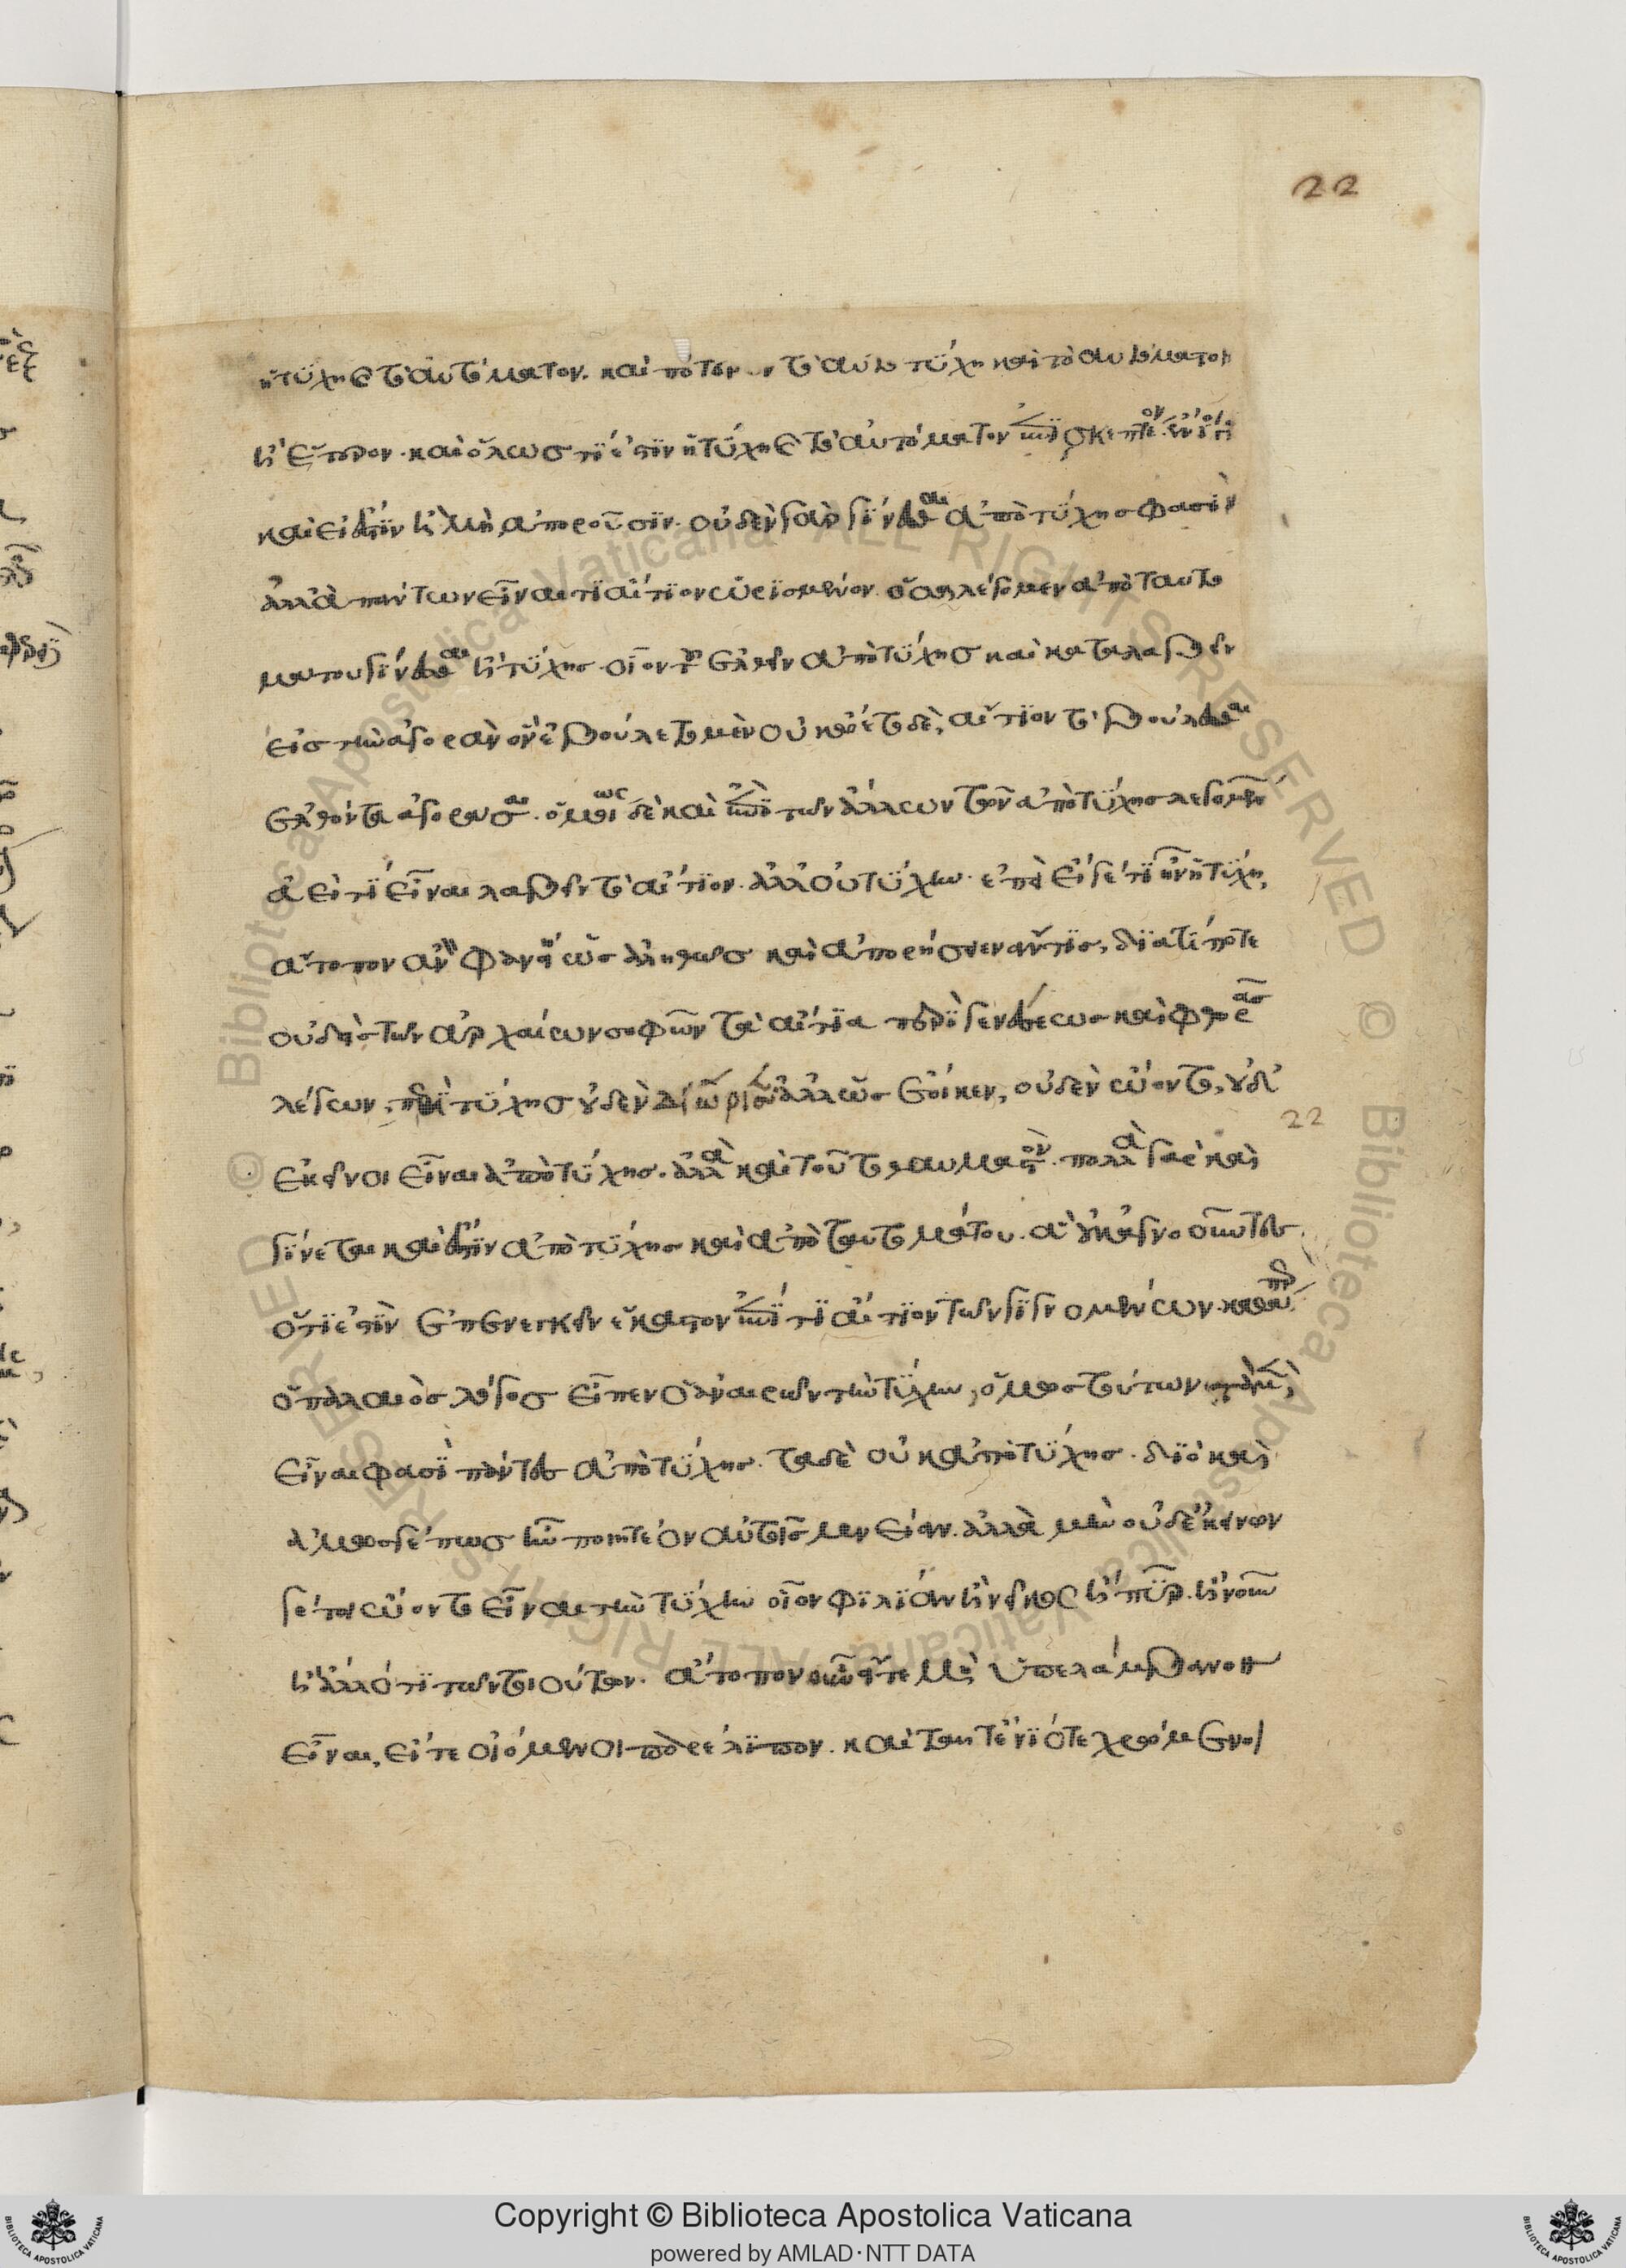 22
ἡ τύχη καὶ τὸ αὐτόματον. καὶ πότερον τὸ αὐτὸ τύχη καὶ τὸ αὐτόματον
ἢ ἕτερον. καὶ ὅλως τί ἐστιν ἡ τύχη καὶ τὸ αὐτόματον ἐπισκεπτέον. ἔνιοι
καὶ εἰ ἔστιν ἢ μὴ ἀποροῦσιν. οὐδὲν γὰρ γίνεσθαι ἀπὸ τύχης φασὶν
ἀλλὰ πάντων εἶναι τι αἴτιον ὡρισμένον. ὅσα λέγομεν ἀπὸ ταυτο
μάτου γίνεσθαι ἢ τύχης. οἷον τοῦ ἐλθεῖν ἀπὸ τύχης καὶ καταλαβεῖν
εἰς τὴν ἀγορὰν ὃν ἐβούλετο μὲν οὐκ ᾤετο δὲ, αἴτιον τὸ βούλεσθαι
ἐλθόντα ἀγοράσαι. ὁμοίως δὲ καὶ ἐπὶ τῶν ἄλλων τῶν ἀπὸ τύχης λεγομένων
ἀεί τι εἶναι λαβεῖν τὸ αἴτιον. ἀλλ' οὐ τύχην. ἐπεὶ εἴ γέ τι ἦν ἡ τύχη,
ἄτοπον ἂν φανείη ὡς ἀληθῶς καὶ ἀπορήσειεν ἄν τις, διατί ποτε
οὐδεὶς τῶν ἀρχαίων σοφῶν τὰ αἴτια περὶ γενέσεως καὶ φθορᾶς
λέγων, περὶ τύχης οὐδὲν διώρισεν ἀλλ' ὡς ἔοικεν, οὐδὲν ᾤοντο, οὐδ'
ἐκεῖνοι εἶναι ἀπὸ τύχης. ἀλλὰ καὶ τοῦτο θαυμαστόν. πολλὰ γὰρ καὶ
γίνεται καὶ ἔστιν ἀπὸ τύχης καὶ ἀπὸ ταυτομάτου. ἃ οὐκ ἀγνοοῦντες
ὅτι ἐστὶν ἐπενεγκεῖν ἕκαστον ἐπί τι αἴτιον τῶν γιγνομένων. καθάπερ
ὁ παλαιὸς λόγος εἶπεν ὁ ἀναιρῶν τὴν τύχην, ὅμως τούτων τὰ μὲν
εἶναί φασι πάντες ἀπὸ τύχης. τὰ δὲ οὐκ ἀπὸ τύχης. διὸ καὶ
ἁμῶς γέ πως ἦν ποιητέον αὐτοῖς μνείαν. ἀλλὰ μὴν οὐδ' ἐκείνων
γέ τι ᾤοντο εἶναι τὴν τύχην οἷον φιλίαν ἢ νεῖκος ἢ πῦρ. ἢ νοῦν
ἢ ἄλλό τι τῶν τοιούτων. ἄτοπον οὖν εἴτε μὴ ὑπελάμβανον
εἶναι, εἴτε οἰόμενοι παρέλιπον. καὶ ταῦτ' ἐνίοτε χρώμενοι
22
Copyright © Biblioteca Apostolica Vaticana
powered by AMLAD·NTT DATA